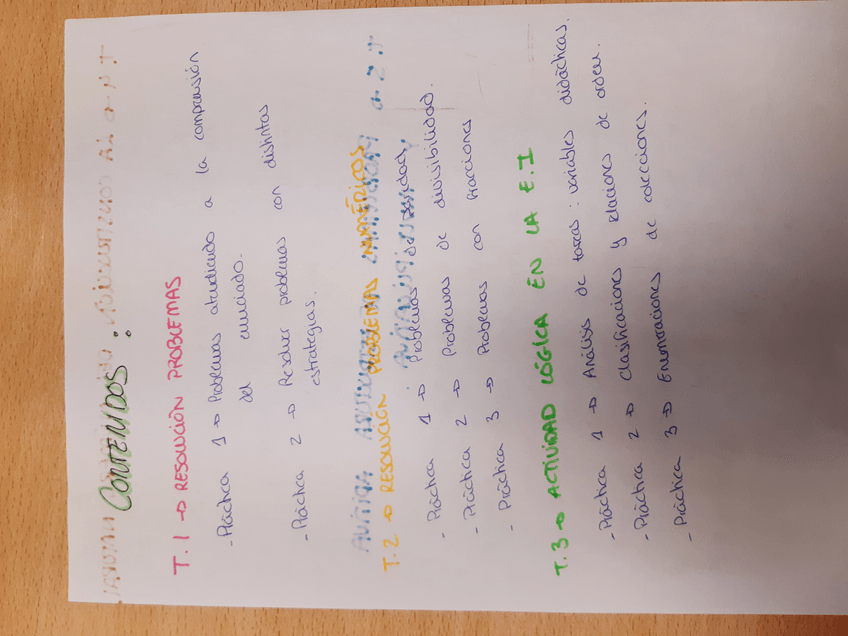 CONTENIDOS:
T.1 → RESOLUCIÓN PROBLEMAS
- Práctica 1 → Problemas atendiendo a la comprensión
del enunciado.
- Práctica 2 → Resolver problemas con distintas
estrategias.
T.2 → RESOLUCIÓN PROBLEMAS NUMÉRICOS
- Práctica 1 → Problemas de
- Práctica 2 → Problemas de divisibilidad.
- Práctica 3 → Problemas con fracciones
T.3 → ACTIVIDAD LÓGICA EN LA E.I
- Práctica 1 → Análisis de tareas: variables didácticas.
- Práctica 2 → Clasificaciones y relaciones de orden.
- Práctica 3 → Enumeraciones de colecciones.